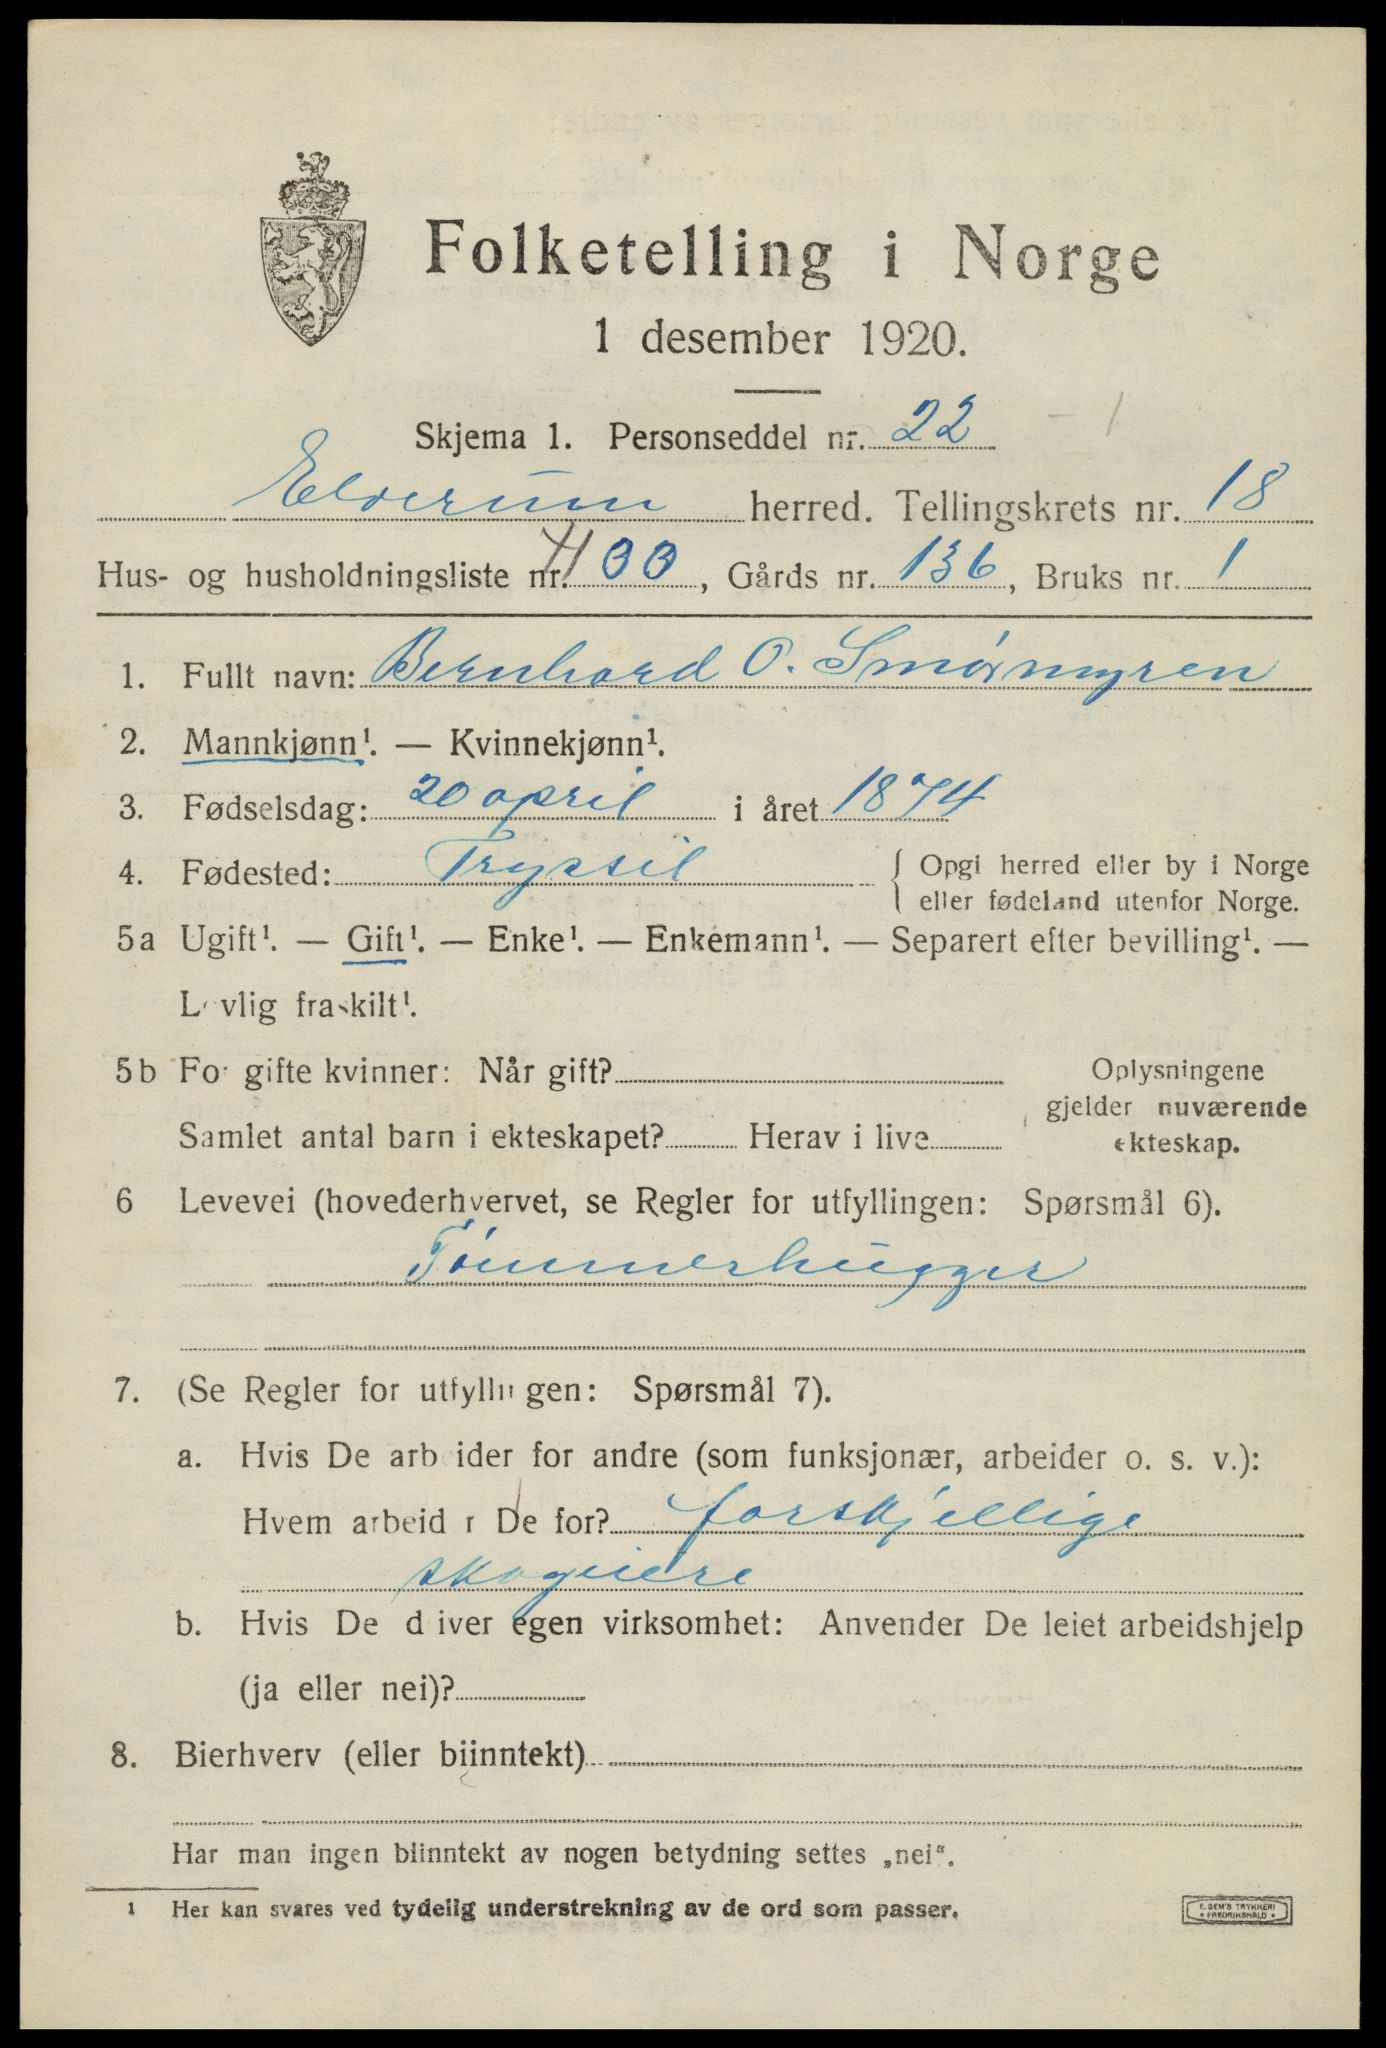 Folketelling i Norge
1 desember 1920.
Skjema 1. Personseddel nr. 22 - 1
Elverum herred. Tellingskrets nr. 18
Hus- og husholdningsliste nr. , Gårds nr. 136, Bruks nr. 1
1. Fullt navn: Bernhard O. Smørmyren
2. Mannkjønn¹. — Kvinnekjønn¹.
3. Fødselsdag: 20 april i året 1874
4. Fødested: Trysil { Opgi herred eller by i Norge
eller fødeland utenfor Norge.
5a Ugift¹. — Gift¹. — Enke¹. — Enkemann¹. — Separert efter bevilling¹. —
Lovlig fraskilt¹.
5b For gifte kvinner: Når gift? Oplysningene
gjelder nuværende
Samlet antal barn i ekteskapet? Herav i live
ekteskap.
6 Levevei (hovederhvervet, se Regler for utfyllingen: Spørsmål 6).
Tømmerhugger
7. (Se Regler for utfyllingen: Spørsmål 7).
a. Hvis De arbeider for andre (som funksjonær, arbeider o. s. v.):
Hvem arbeider De for? forskjellige
skogeiere
b. Hvis De driver egen virksomhet: Anvender De leiet arbeidshjelp
(ja eller nei)?
8. Bierhverv (eller biinntekt)
Har man ingen biinntekt av nogen betydning settes „nei“.
1 Her kan svares ved tydelig understrekning av de ord som passer.
E. SEM'S TRYKKERI
• FREDRIKSHALD •